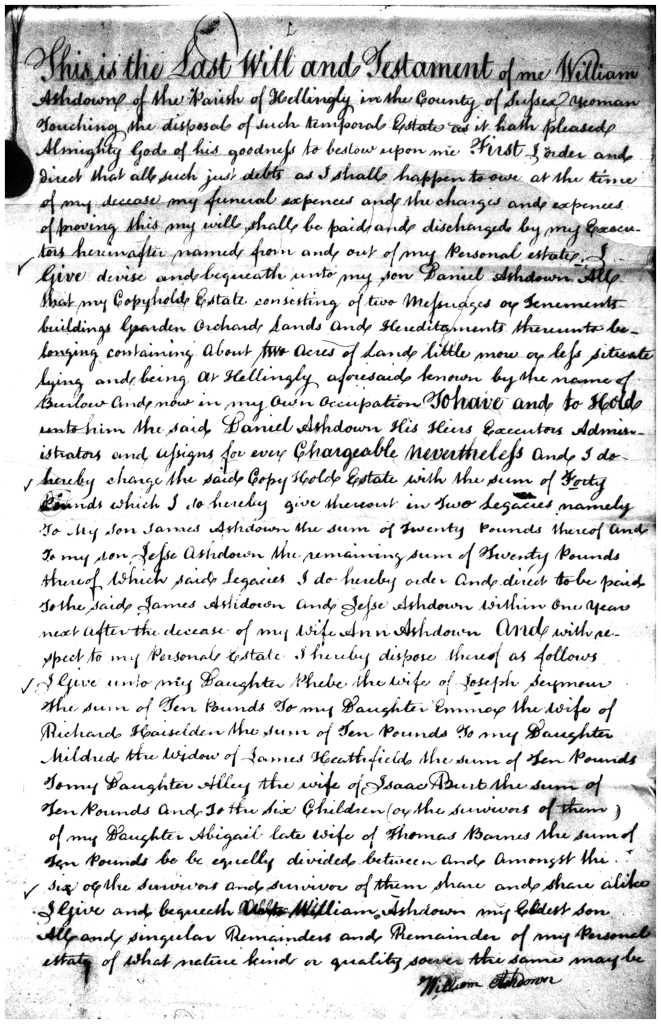 This is the Last Will and Testament of me William
Ashdown of the Parish of Hellingly in the County of Sussex Yeoman
Touching the disposal of such temporal Estate as it hath pleased
Almighty God of his goodness to bestow upon me First I order and
direct that all such just debts as I shall happen to owe at the time
of my decease my funeral expences and the charges and expences
of proving this my will shall be paid and discharged by my Execu-
tors hereinafter named from and out of my Personal estate. I
Give devise and bequeath unto my son Daniel Ashdown All
that my Copyhold Estate consesting of two Messuages or Tenements
buildings Garden Orchard Lands And Hereditaments thereunto be-
longing containing About two Acres of Land little more or less situate
lying and being At Hellingly aforesaid known by the name of
Burlow And now in my Own Occupation To have and to Hold
unto him the said Daniel Ashdown His Heirs Executors Admin-
istrators and assigns for ever Chargeable nevertheless And I do
hereby charge the said Copy Hold Estate with the sum of Forty
Pounds which I do hereby give thereout in Two Legacies namely
To My son James Ashdown the sum of Twenty Pounds thereof And
To my son Jesse Ashdown the remaining sum of Twenty Pounds
thereof Which said Legacies I do hereby order And direct to be paid
To the said James Ashdown And Jesse Ashdown within One Year
next After the decease of my wife Ann Ashdown And with re-
spect to my Personal Estate I hereby dispose thereof as follows
I Give unto my Daughter Phebe the wife of Joseph Seymour
the sum of Ten Pounds To my Daughter Emma the wife of
Richard Haiselden the sum of Ten Pounds To my Daughter
Mildred the Widow of James Heathfield the sum of Ten Pounds
To my Daughter Alley the wife of Isaac Burt the sum of
Ten Pounds And To the six Children (or the survivors of them)
of my Daughter Abigail late wife of Thomas Barnes the sum of
Ten Pounds bo be equelly divided between and Amongst the
six or the survivors and survivor of them share and share alike
I Give and bequeath William Ashdown my Eldest son
All and singular Remainders and Remainder of my Personal
estate of what nature kind or quality soever the same may be
William Ashdown